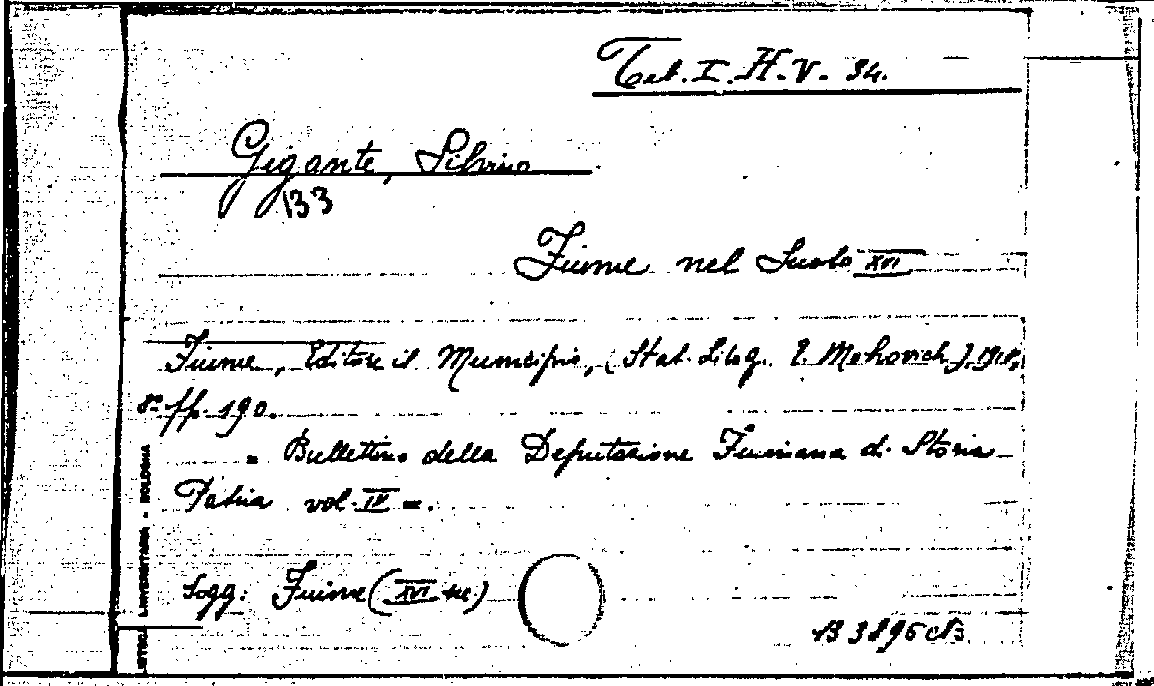 Tab. I. H. V. 34.
Gigante, Silvino
133
Fiume nel Secolo XVI
Fiume, Editore il Municipio, (Stab. Litog. E. Mohovich). 1918.
8° pp. 190.
= Bullettino della Deputazione Fiumana di Storia
Patria vol. IV =.
Sogg: Fiume (XVI sec)
B 3896
UNIVERSITARIA - BOLOGNA